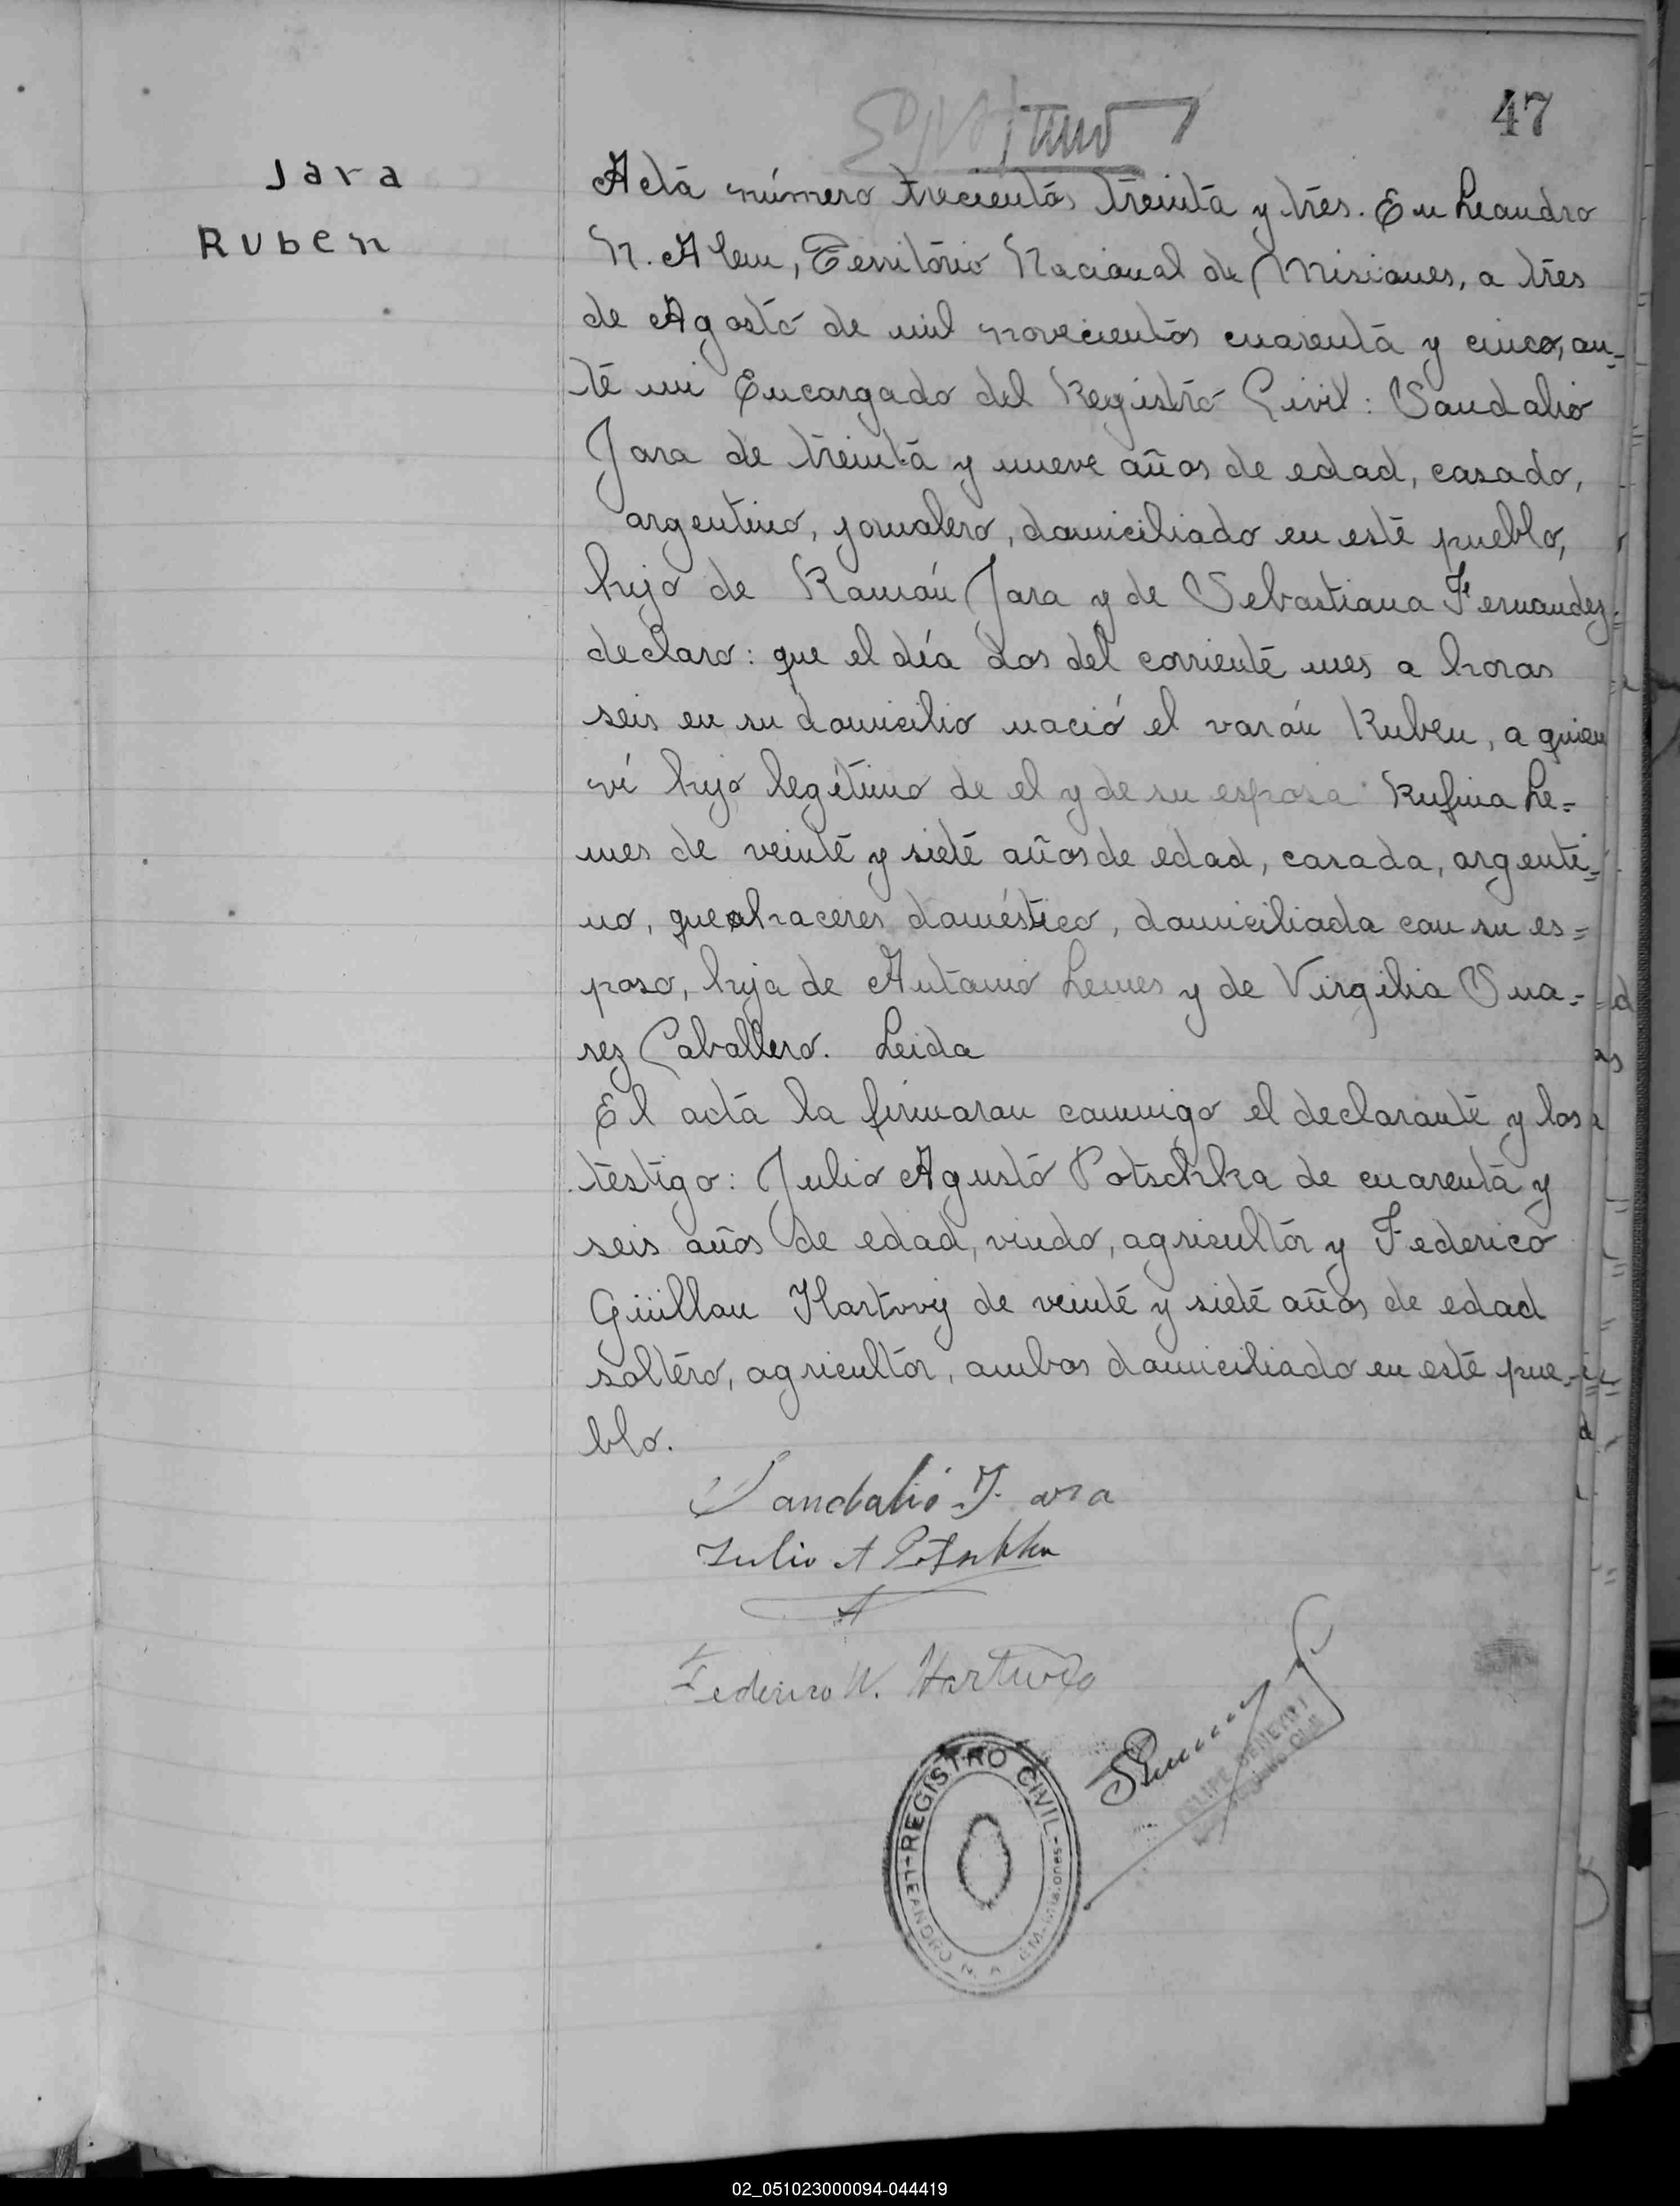 47
Jara
Ruben
Acta número trecientos treinta y tres. En Leandro
N. Alem, Territorio Nacional de Misiones, a tres
de Agosto de mil novecientos cuarenta y cinco, an-
te mi Encargado del Registro Civil: Sandalio
Jara de treinta y nueve años de edad, casado,
argentino, jornalero, domiciliado en este pueblo,
hijo de Ramón Jara y de Sebastiana Fernandez
declaro: que el día dos del corriente mes a horas
seis en su domicilio nació el varón Ruben, a quien
ví hijo legétimo de el y de su esposa Rufina Le=
mes de veinte y siete años de edad, casada, argenti=
no, quealhaceres doméstico, domiciliada con su es=
poso, hija de Antonio Lemes y de Virgilia Sua=
rez Caballero. Leida
El acta la firmaron conmigo el declarante y los
testigo: Julio Agusto Potschka de cuarenta y
seis años de edad, viudo, agricultor y Federico
Güillon Hartwig de veinte y siete años de edad
soltero, agricultor, ambos domiciliado en este pue-
blo.
Sandalio J. ara
Julio A Potschka
Federico W. Hartwig
REGISTRO CIVIL
LEANDRO N. A EM-Misiones-